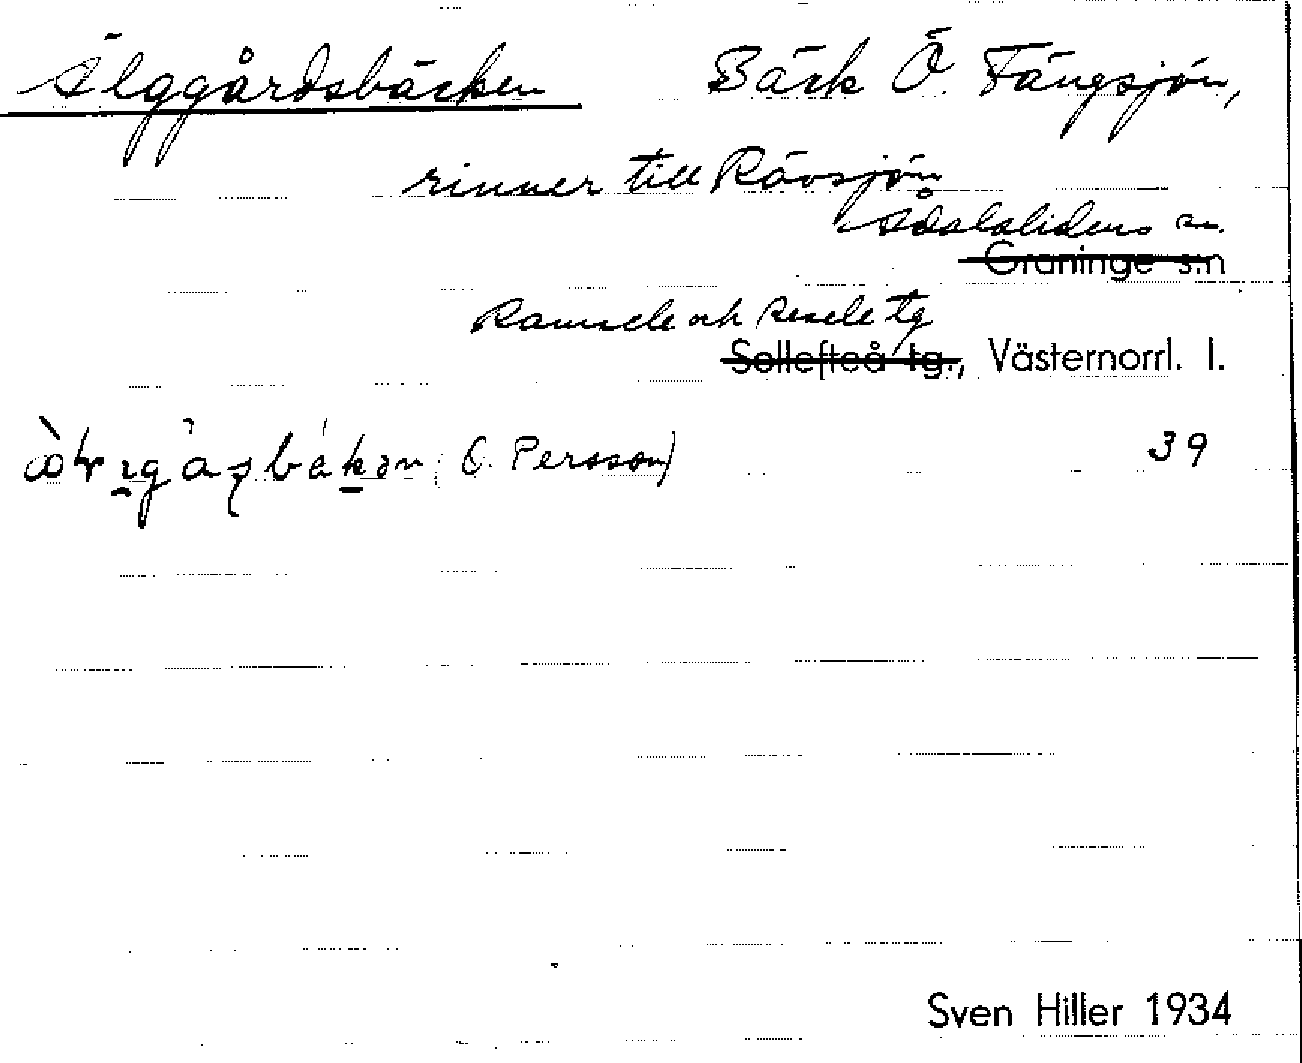 Älggårdsbäcken Bäck Ö. Fängsjön,
rinner till Rävsjön
Ådalslidens sn.
Graninge s:n
Ramsele och Resele tg
Sollefteå tg., Västernorrl. l.
(O. Persson) 39
Sven Hiller 1934